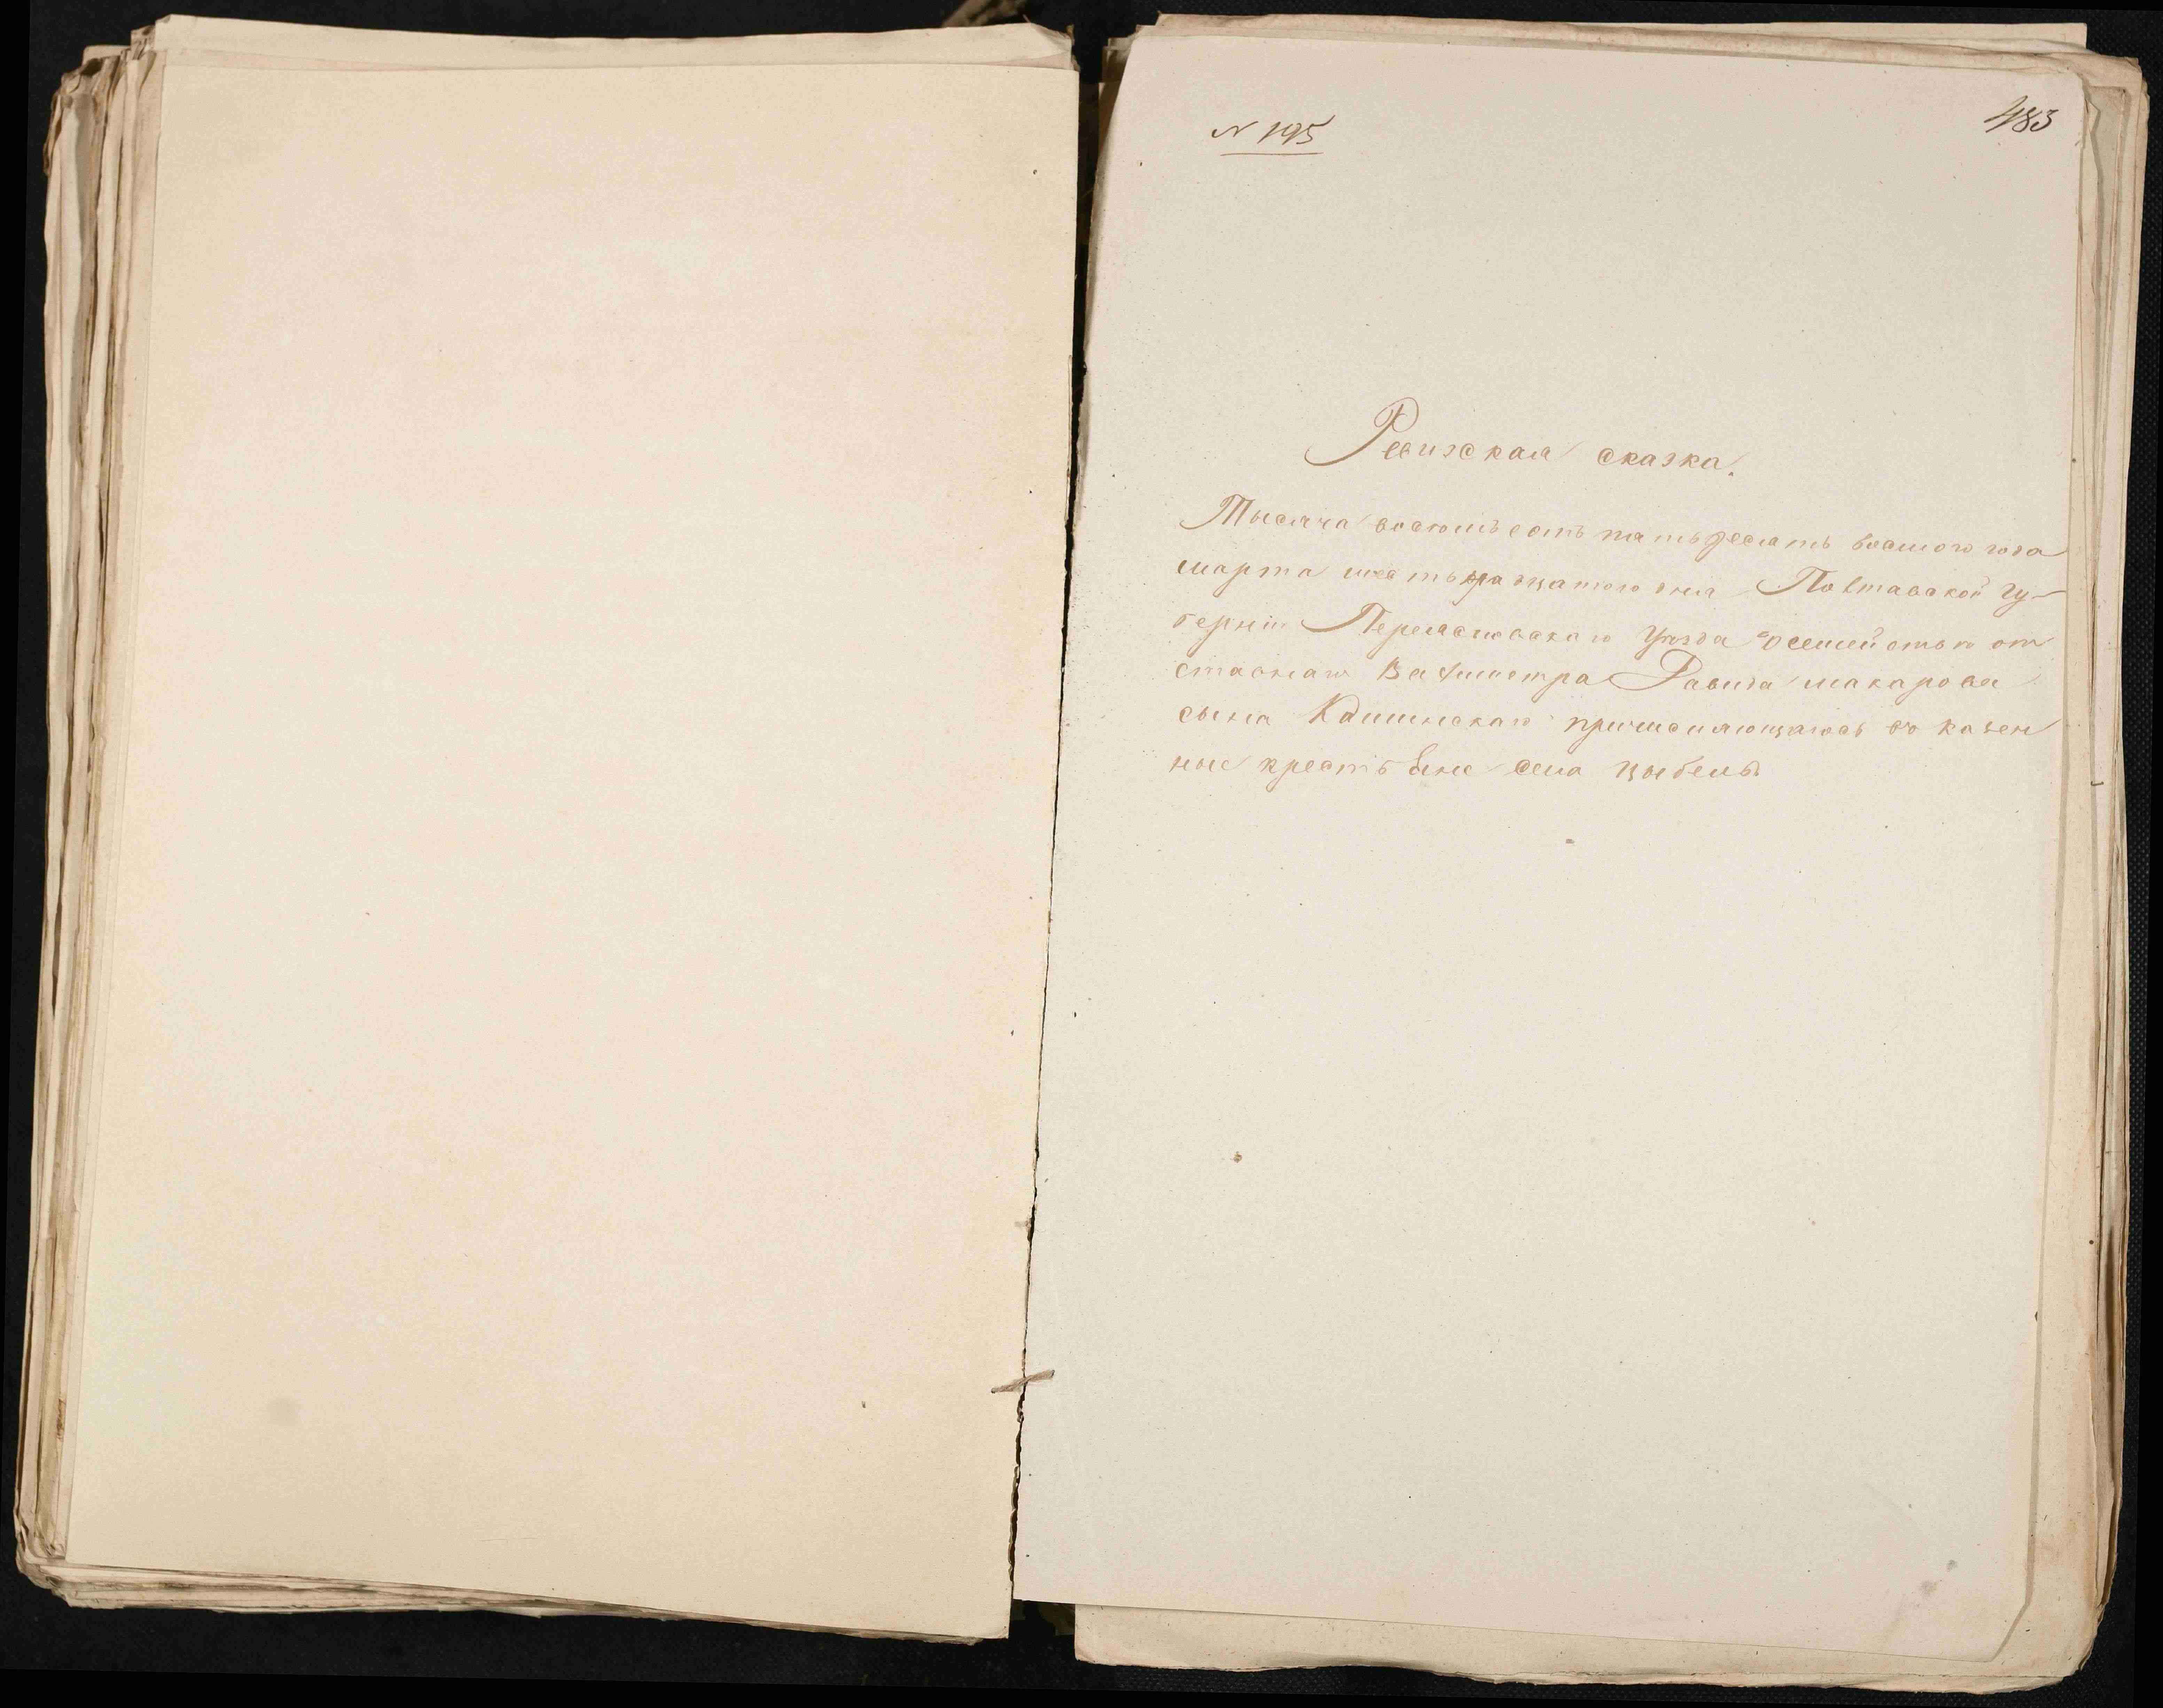 N 195
483
Ревизская сказка.
Тысяча восемьсотъ пятьдесятъ восмого года
марта шестьнадцатого дня Полтавской гу-
берніи Переяславскаго Уезда о семействѣ от
ставнаго Вахмистра Давида макарова
сына причисляющагося въ казен
ные крестьяне села цыбель